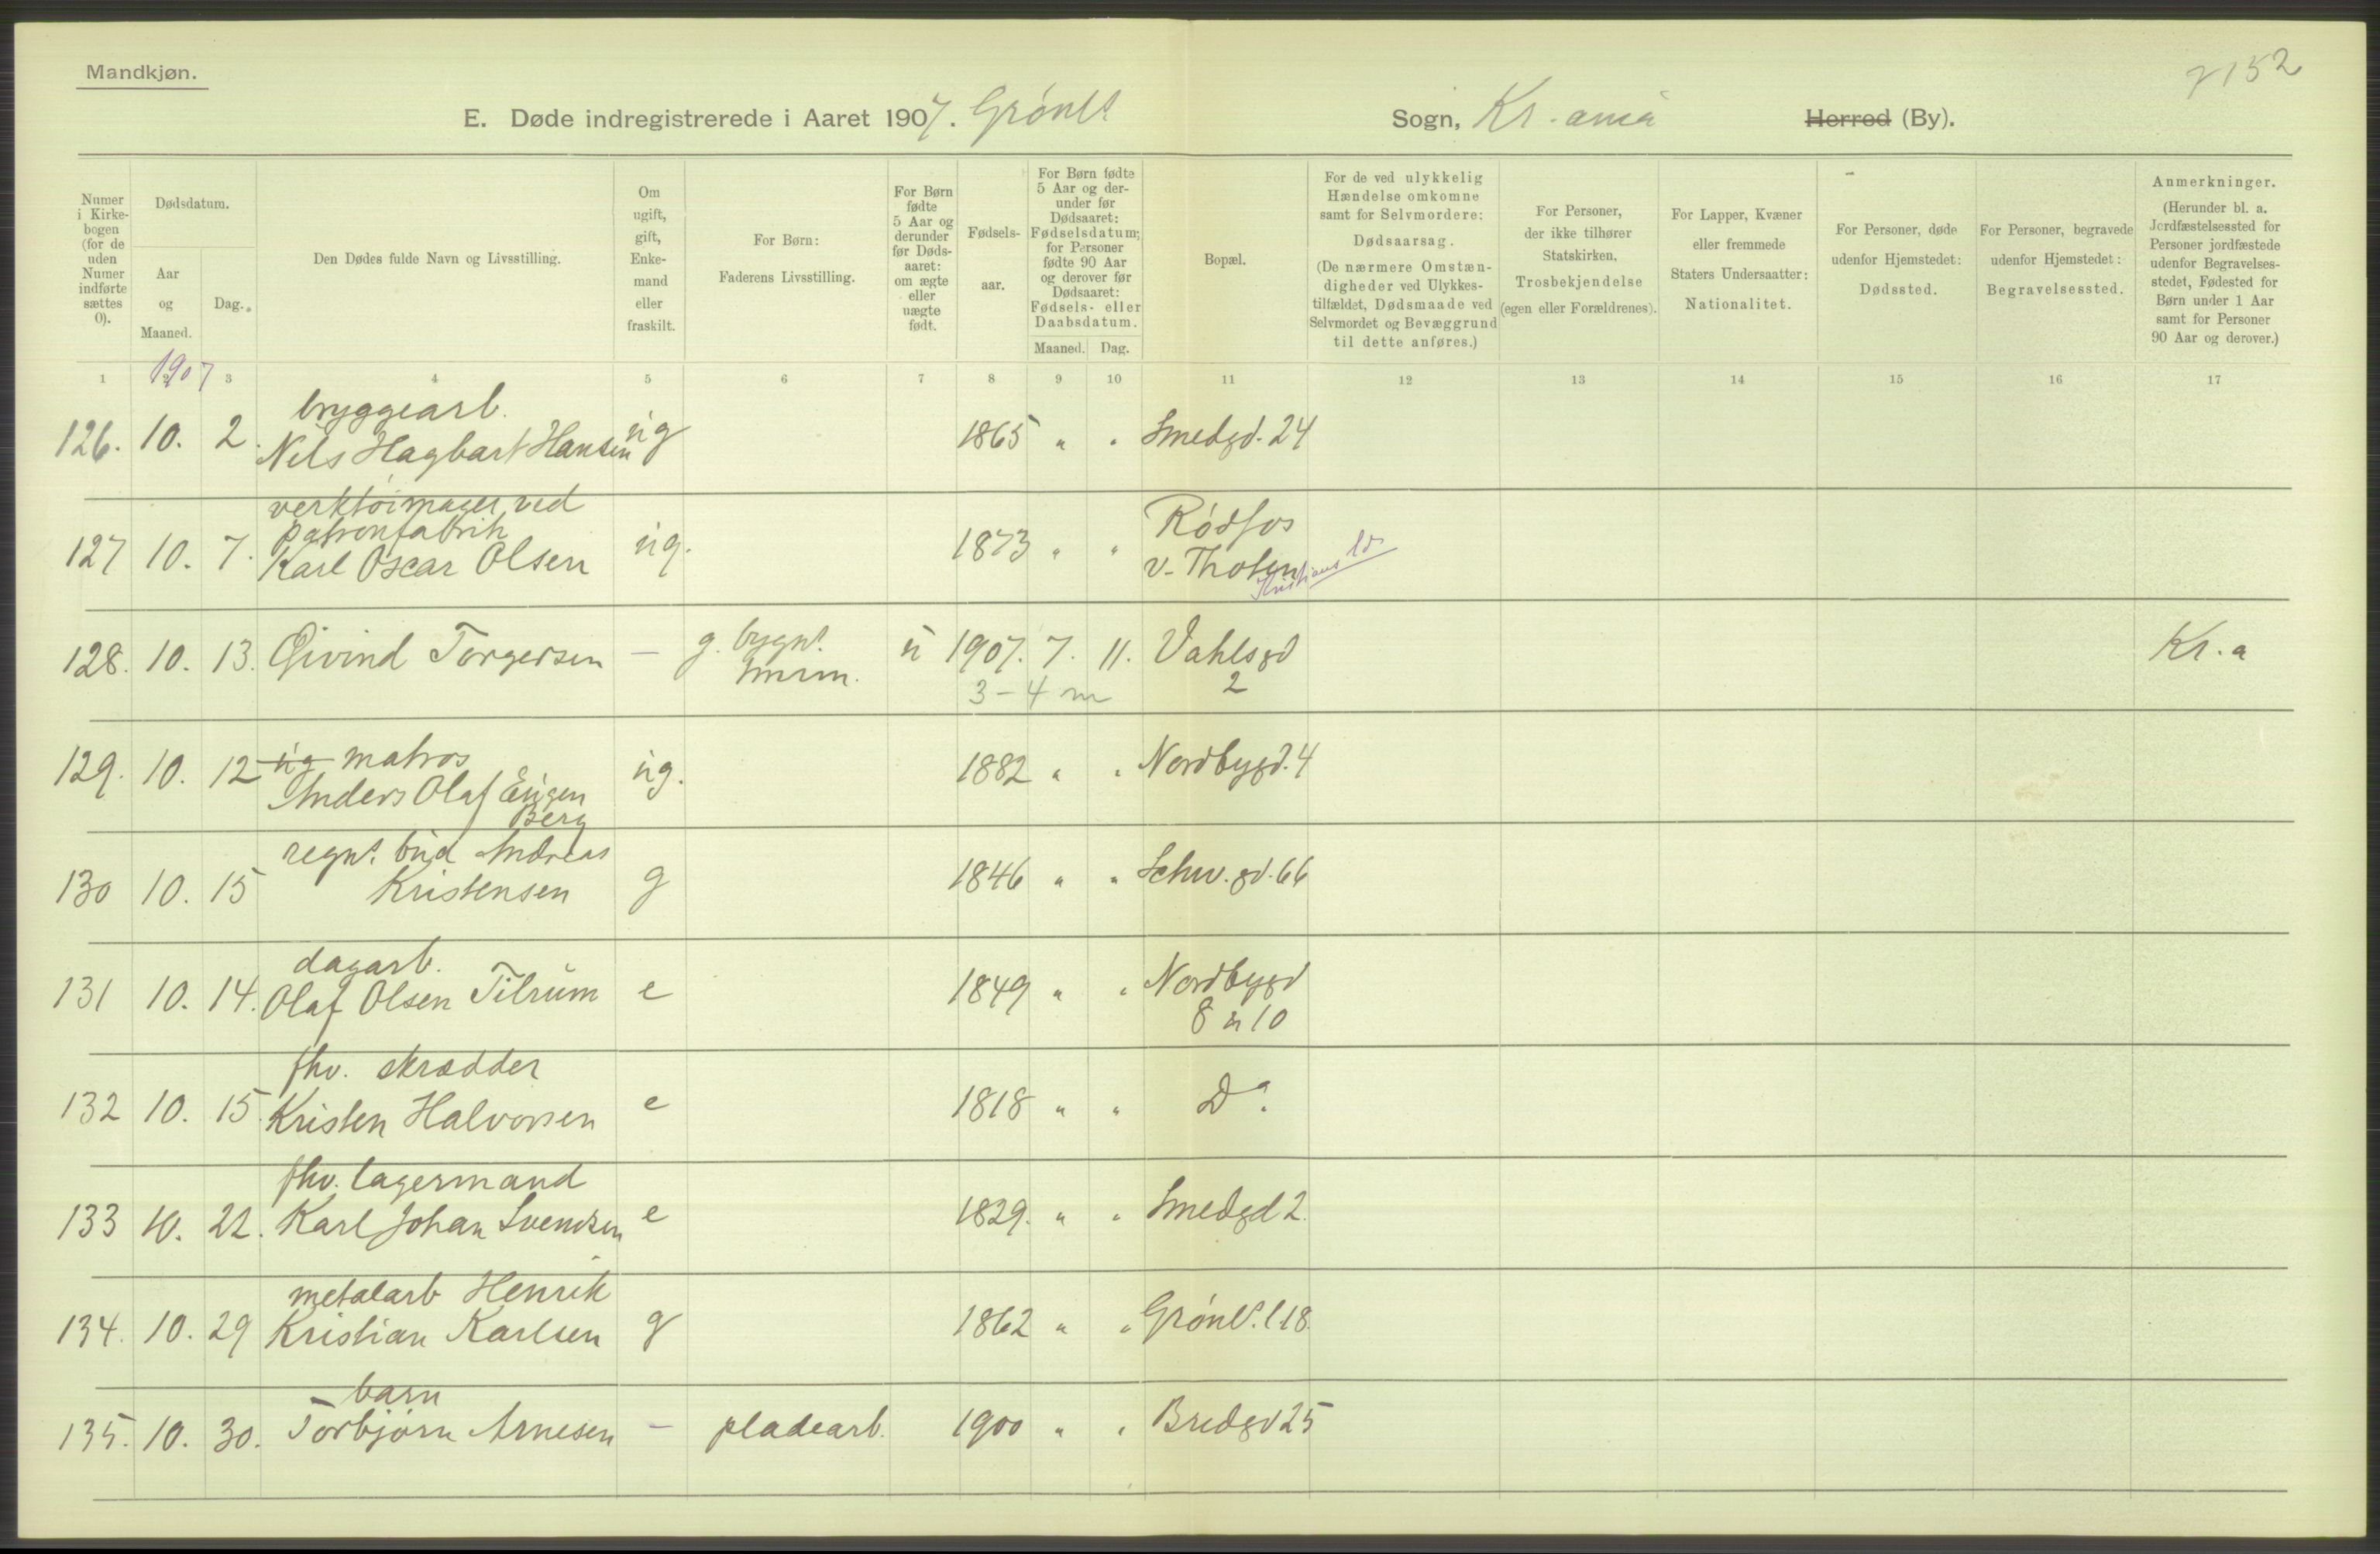 Mandkjøn.
2152
E. Døde indregistrerede i Aaret 1907. Grønls Sogn, Kr.ania Herred (By).
Numer i Kirkebogen (for de uden Numer indførte sættes 0).
Dødsdatum.
Aar og Maaned.
Dag.
Den Dødes fulde Navn og Livsstilling.
Om ugift, gift, Enkemand eller fraskilt.
For Børn:
Faderens Livsstilling.
For Børn fødte 5 Aar og derunder før Dødsaaret: om ægte eller uægte født.
Fødselsaar.
For Børn fødte 5 Aar og derunder før Dødsaaret: Fødselsdatum; for Personer fødte 90 Aar og derover før Dødsaaret: Fødsels- eller Daabsdatum.
Maaned. Dag.
Bopæl.
For de ved ulykkelig Hændelse omkomne samt for Selvmordere:
Dødsaarsag.
(De nærmere Omstændigheder ved Ulykkestilfældet, Dødsmaade ved Selvmordet og Bevæggrund til dette anføres.)
For Personer, der ikke tilhører Statskirken,
Trosbekjendelse
(egen eller Forældrenes).
For Lapper, Kvæner eller fremmede Staters Undersaatter:
Nationalitet.
For Personer, døde udenfor Hjemstedet:
Dødssted.
For Personer, begravede udenfor Hjemstedet:
Begravelsessted.
Anmerkninger.
(Herunder bl. a. Jordfæstelsessted for Personer jordfæstede udenfor Begravelsesstedet, Fødested for Børn under 1 Aar samt for Personer 90 Aar og derover.)
1 2 3 4 5 6 7 8 9 10 11 12 13 14 15 16 17
1907
bryggearb.
126. 10. 2. Nils Hagbart Hansen ug 1865 " " Smedgd. 24
verktøimager ved
patronfabrik Rødfos
127 10. 7. Karl Oscar Olsen ug. 1873 " " v. Thoten
Kristians
128. 10. 13. Øivind Torgersen — g. bygn. u 1907. 7. 11. Vahlsgd Kr.a
3-4 m 2
ug matros
129. 10. 12 Anders Olaf Eugen ug. 1882 " " Nordbygd. 4
Berg
regnt. bud Andreas
130 10. 15 Kristensen g 1846 " " Schw.gd. 66
dagarb.
131 10. 14. Olaf Olsen Tilrum e 1849 " " Nordbygd
8 n 10
fhv. skrædder
132 10. 15. Kristen Halvorsen e 1818 " " Do.
fhv. lagermand
133 10. 22. Karl Johan Svendsen e 1829. " " Smedgd 2.
metalarb Henrik
134. 10. 29 Kristian Karlsen g 1862 " " Grønl. l 18.
barn
135. 10. 30. Torbjørn Arnesen — pladearb. 1900 " " Bredgd 25